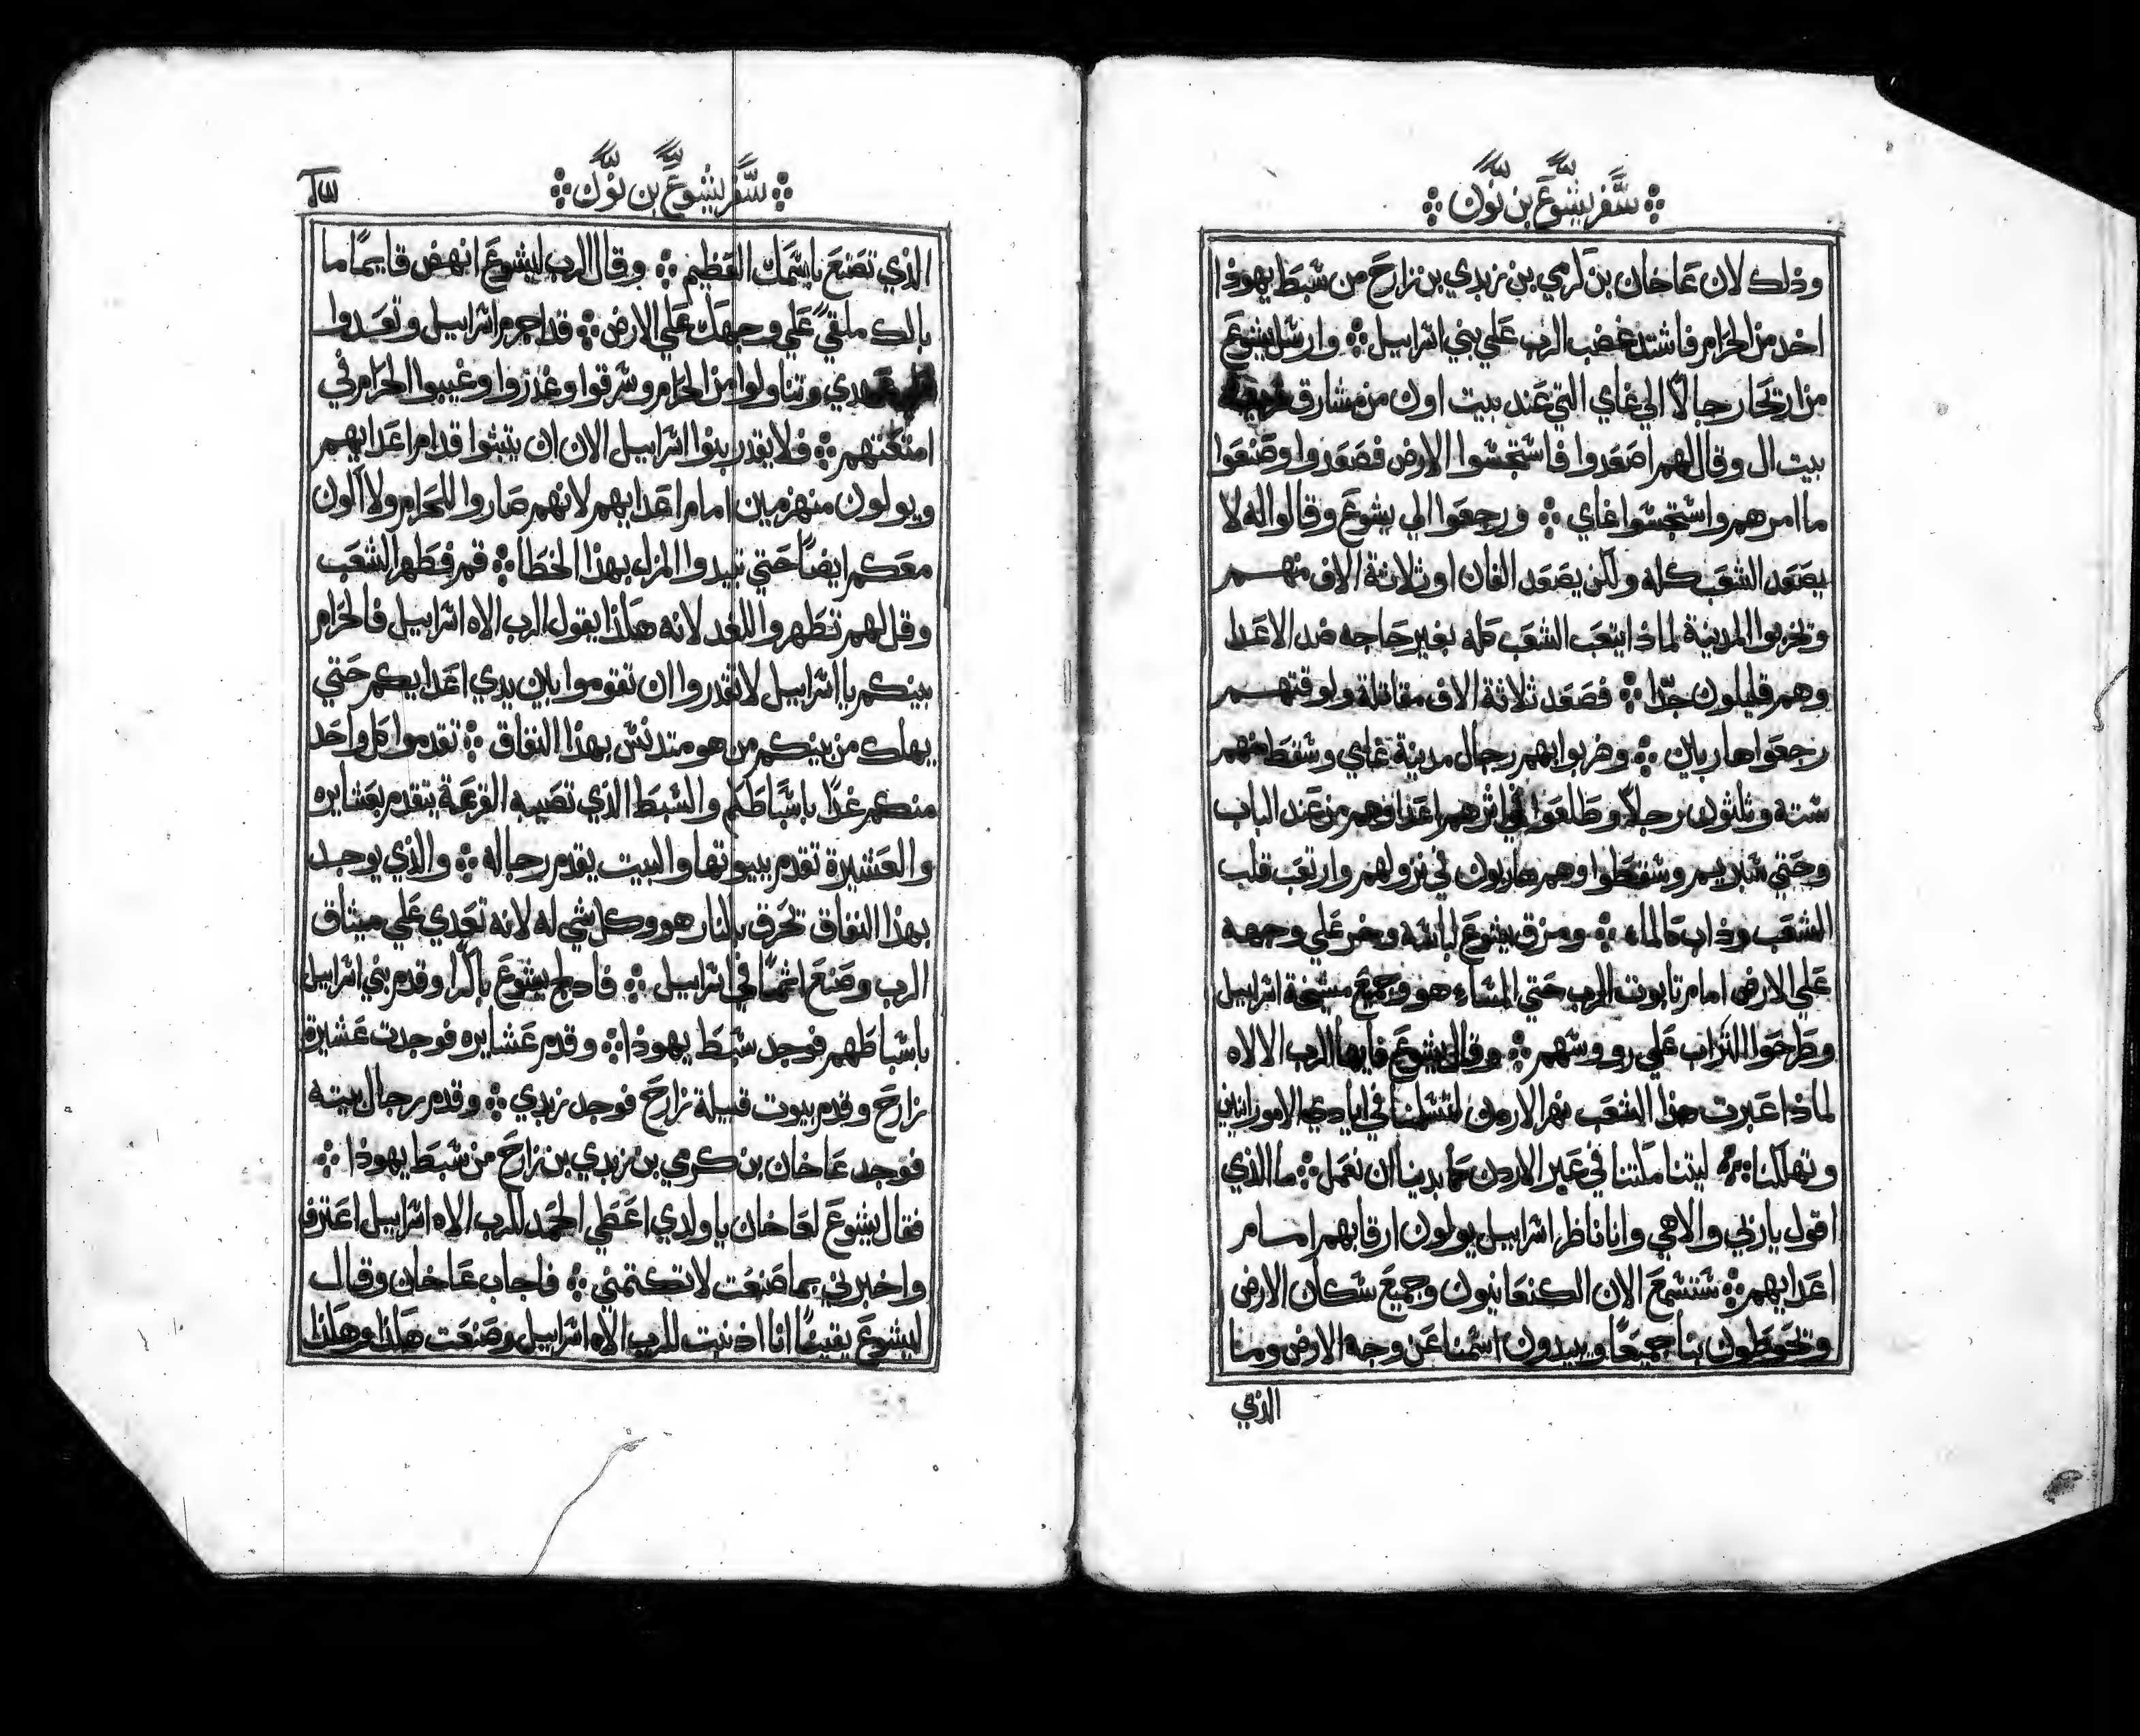 سفر يشوع بن نون
وذلك لان عاخان بن كرمي بن زبدي بن زارح من شبط يهوذا
اخد من الحرام فاشتد غضب الرب علي بني اسراييل ⁘ وارسل يشوع
من اريحا رجالاً الي غاي التي عند بيت اون من مشارق
بيت ال وقال لهم اصعدوا فاستجسوا الارض فصعدوا وصنعوا
ما امرهم واستجسوا غاي ⁘ ورجعوا الي يشوع وقالوا له لا
يصعد الشعب كله ولكن يصعد الفان او ثلاثة الاف منهم
وتخربوا المدينة لماذا يتعب الشعب كله بغير حاجه ضد الاعدا
وهم قليلون جدّا ⁘ فصعد ثلاثة الاف مقاتلة ولوقتهم
رجعوا هاربين ⁘ وضربوا بهم رجال مدينة غاي وسقط منهم
ستة وثلثون رجلاً وطلعوا في اثرهم اعداوهم من عند الباب
وحتي شبريم وسقطوا وهم هاربون في نزولهم وارتعب قلب
الشعب وذاب كالماء ⁘ ومزق يشوع لباسه وخر علي وجهه
علي الارض امام تابوت الرب حتي المساء هو وجميع مشيخة اسراييل
وطرحوا التراب علي رووسهم ⁘ وقال يشوع فايها الرب الالاه
لماذا عبرت هذا الشعب نهر الاردن لتسلمنا في ايادي الامورانيين
وتهلكنا ⁘ ليتنا مكتنا في عبر الاردن كما بدينا ان نعمل ⁘ ما الذي
اقول ياربي والاهي وانا ناظر اسراييل يولون ارقابهم امام
اعدايهم ⁘ ستسمع الان الكنعانيون وجميع سكان الارض
وتحوطون بنا جميعاً ويبيدون اسمنا عن وجه الارض وما
الذي
سفر يشوع بن نون
الذي تصنع باسمك العظيم ⁘ وقال الرب ليشوع انهض قايمًا ما
بالك ملقيً علي وجهك علي الارض ⁘ قد اجرم اسراييل وتعدوا
وتناولوا من الحرام وسرقوا وغدروا وغيبوا الحرام في
امتعتهم ⁘ فلا يقدر بنوا اسراييل الان ان يتبتوا قدام اعدايهم
ويولون منهزمين امام اعدايهم لانهم صاروا للحرام ولا اكون
معكم ايضاً حتي تبيدوا المزل بهذا الخطا ⁘ قم فطهر الشعب
وقل لهم تطهروا للغد لانه هكذا يقول الرب الاه اسراييل فالحرام
بينكم يا اسراييل لا تقدروا ان تقوموا بين يدي اعدايكم حتي
يهلك من بينكم من هو متدنس بهذا النفاق ⁘ تقدموا كل واحد
منكم غدًا باسباطكم والشبط الذي تصيبه القرعة يتقدم بعشايره
والعشيرة تقدم بيوتها والبيت يقدم رجاله ⁘ والذي يوجد
بهذا النفاق تحرق بالنار هو وكل شي له لانه تعدي علي ميثاق
الرب وصنع اثمًا في اسراييل ⁘ فادلج يشوع باكرا وقدم بني اسراييل
باشباطهم فوجد شبط يهوذا ⁘ وقدم عشايره فوجدت عشيرة
زارح وقدم بيوت قبيلة زارح فوجد زبدي ⁘ وقدم رجال بيته
فوجد عاخان بن كرمي بن زبدي بن زارح من شبط يهوذا ⁘
فقال يشوع لعاخان يا ولدي اعطي الحمد للرب الاه اسراييل اعترف
واخبرني بما صنعت لا تكتمني ⁘ فاجاب عاخان وقال
ليشوع يقينًا انا اذنبت للرب الاه اسراييل وصنعت هكذا وهكذا